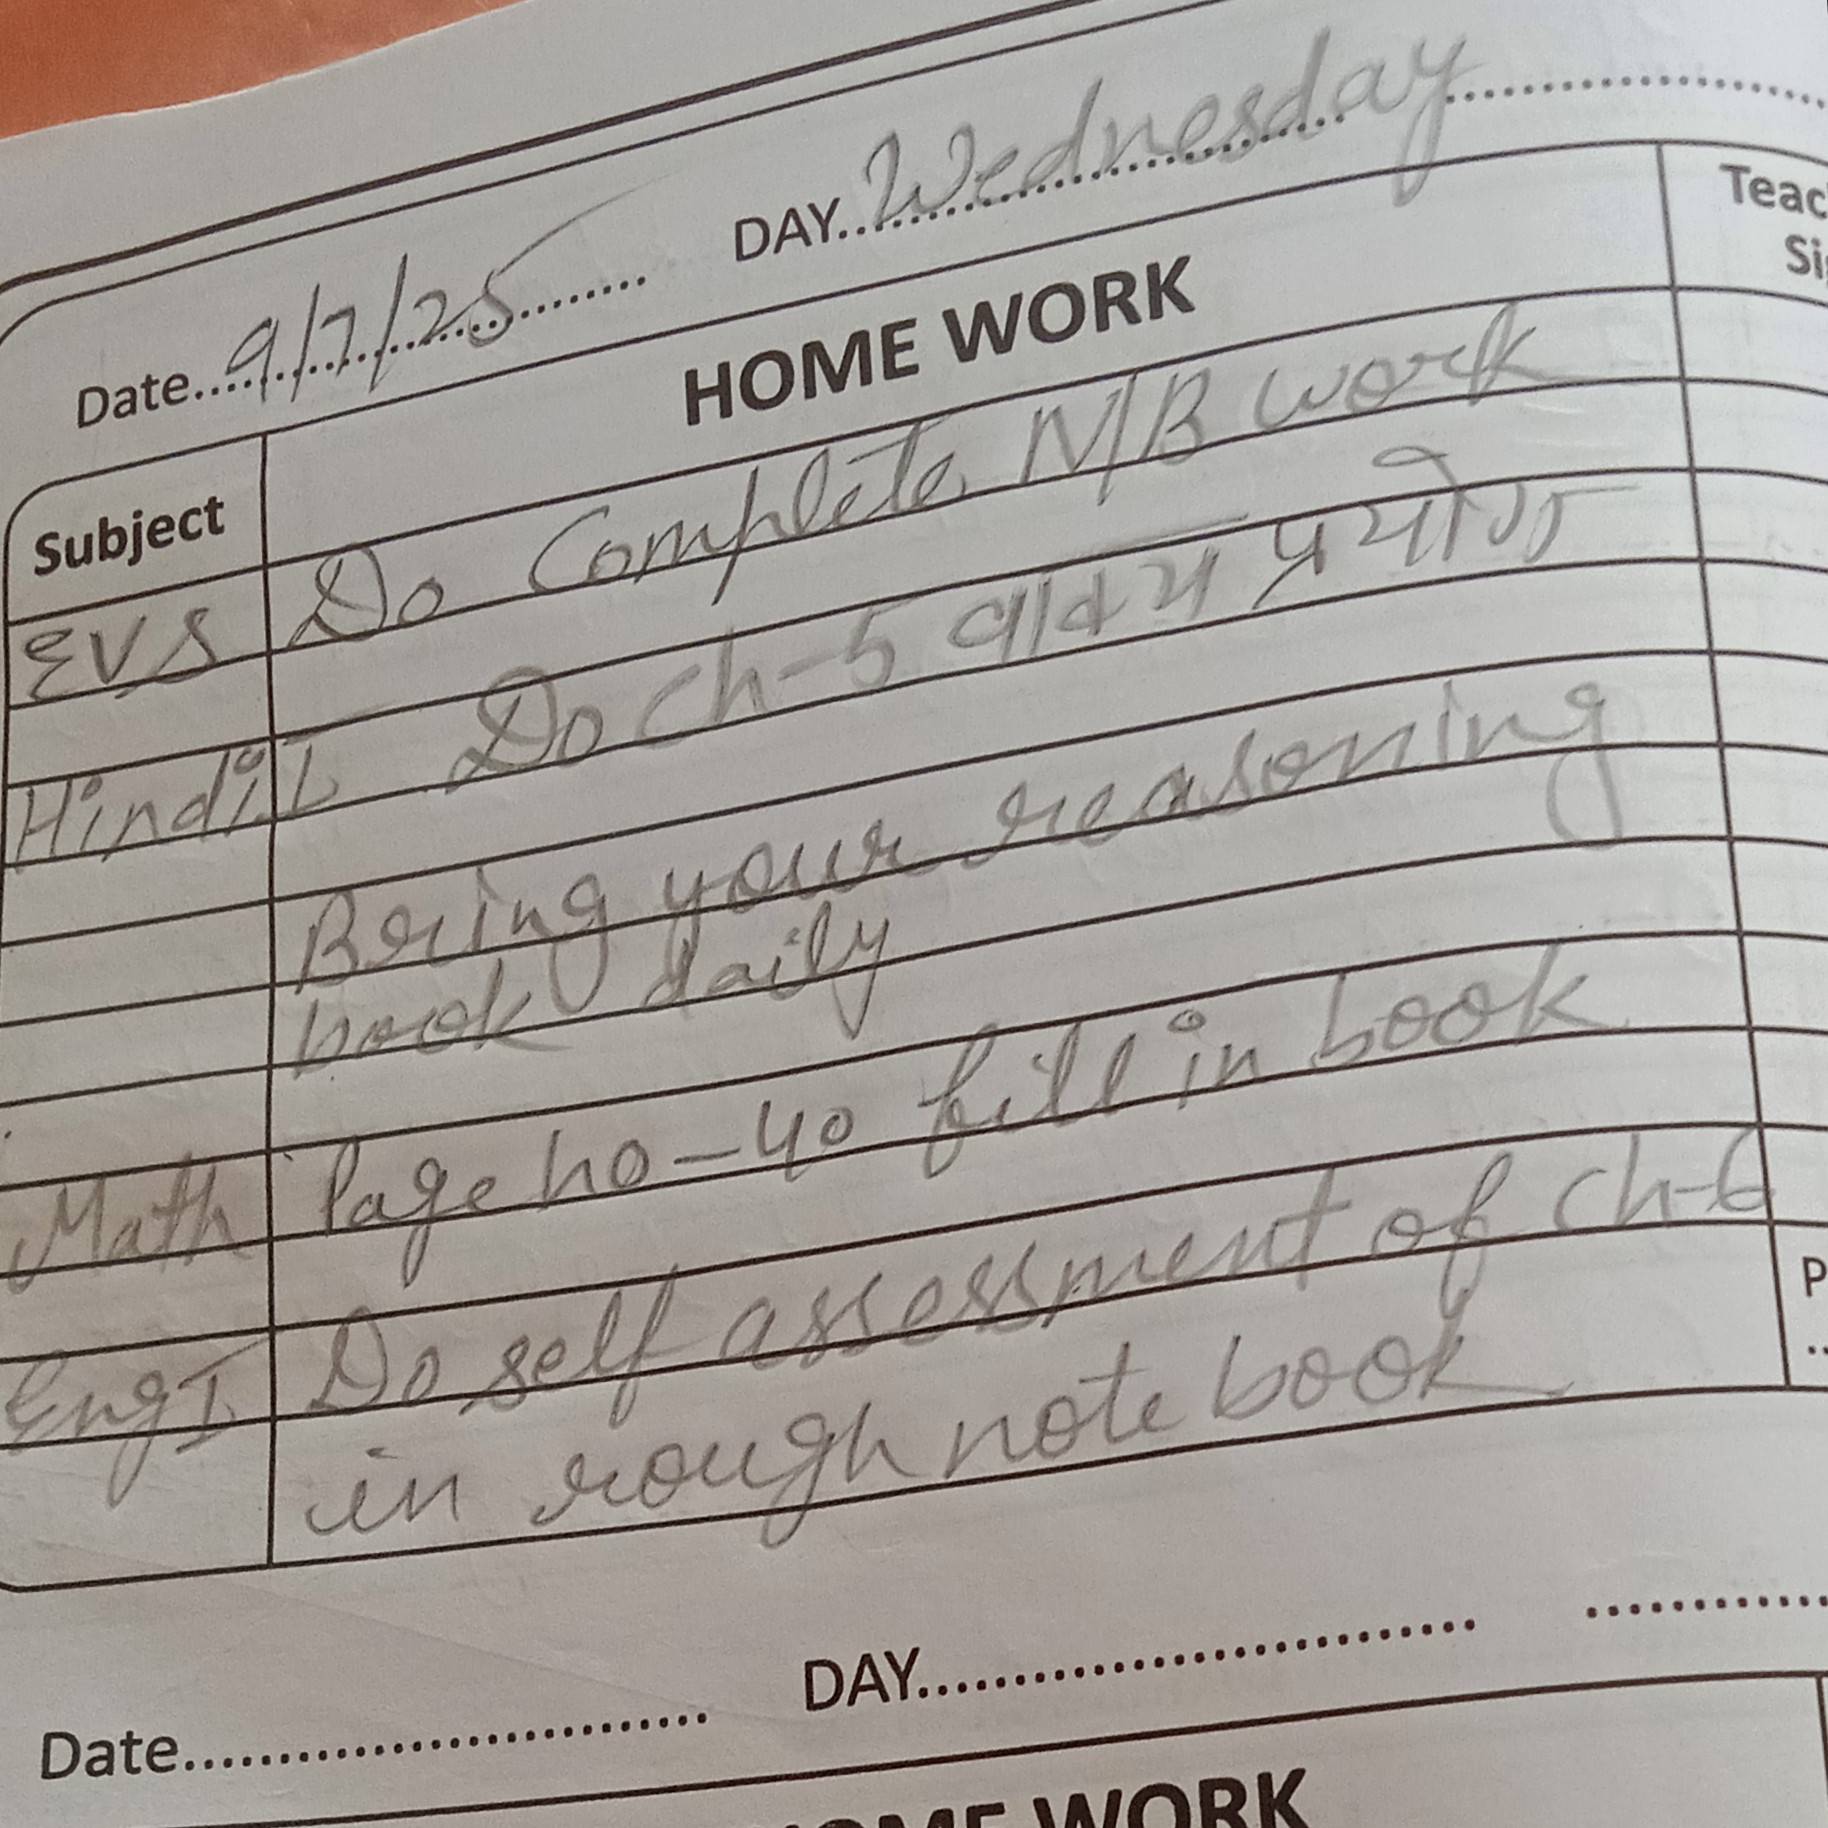 Date....9/7/25.... DAY....Wednesday....
HOME WORK
Teac
Si
Subject
EVS Do Complete N/B work
Hindi.I Do ch-5 वाक्य प्रयोग
Bring your reasoning
book daily
Math Page no-40 fill in book
Eng I Do self assessment of ch-6
in rough note book
P
Date.... DAY....
HOME WORK